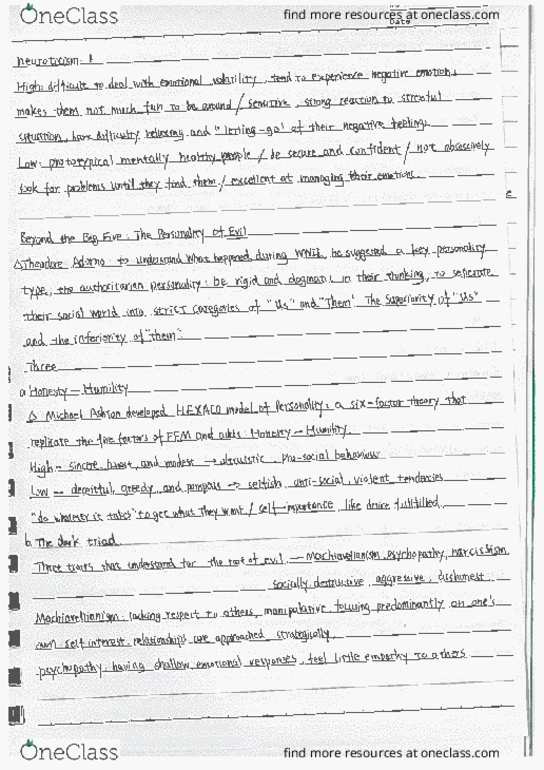 OneClass
find more resources at oneclass.com
Date
neuroticism:
High: difficult to deal with emotional volatility, tend to experience negative emotions
makes them not much fun to be around / sensitive, strong reaction to stressful
situation, have difficulty relaxing and "letting-go" of their negative feelings.
Low: prototypical mentally healthy people / be secure and confident / not obsessively
look for problems until they find them. / excellent at managing their emotions.
Beyond the Big Five: The Personality of Evil
△ Theodore Adorno to understand what happened during WWII, he suggested a key personality
type, the authoritarian personality: be rigid and dogmatic in their thinking, to seperate
their social world into strict categories of "Us" and "Them" The superiority of "Us"
and the inferiority of "them".
Three
a Honesty - Humility
△ Michael Ashton developed HEXACO model of Personality: a six-factor theory that
replicate the five factors of FFM and adds Honesty - Humility.
High - sincere, honest, and modest → altruistic, pro-social behaviour
Low - deceitful, greedy, and pompous → selfish, anti-social, violent tendencies
"do whatever it takes" to get what they want / self-importance, like desire fulfilled.
b. The dark triad
Three traits that understand for the root of evil. - Machiavellianism, psychopathy, narcissism
socially destructive, aggressive, dishonest
Machiavellianism: lacking respect to others, manipulative focusing predominantly on one's
own self interest, relationships are approached strategically
psychopathy, having shallow emotional responses, feel little empathy to others
OneClass
find more resources at oneclass.com